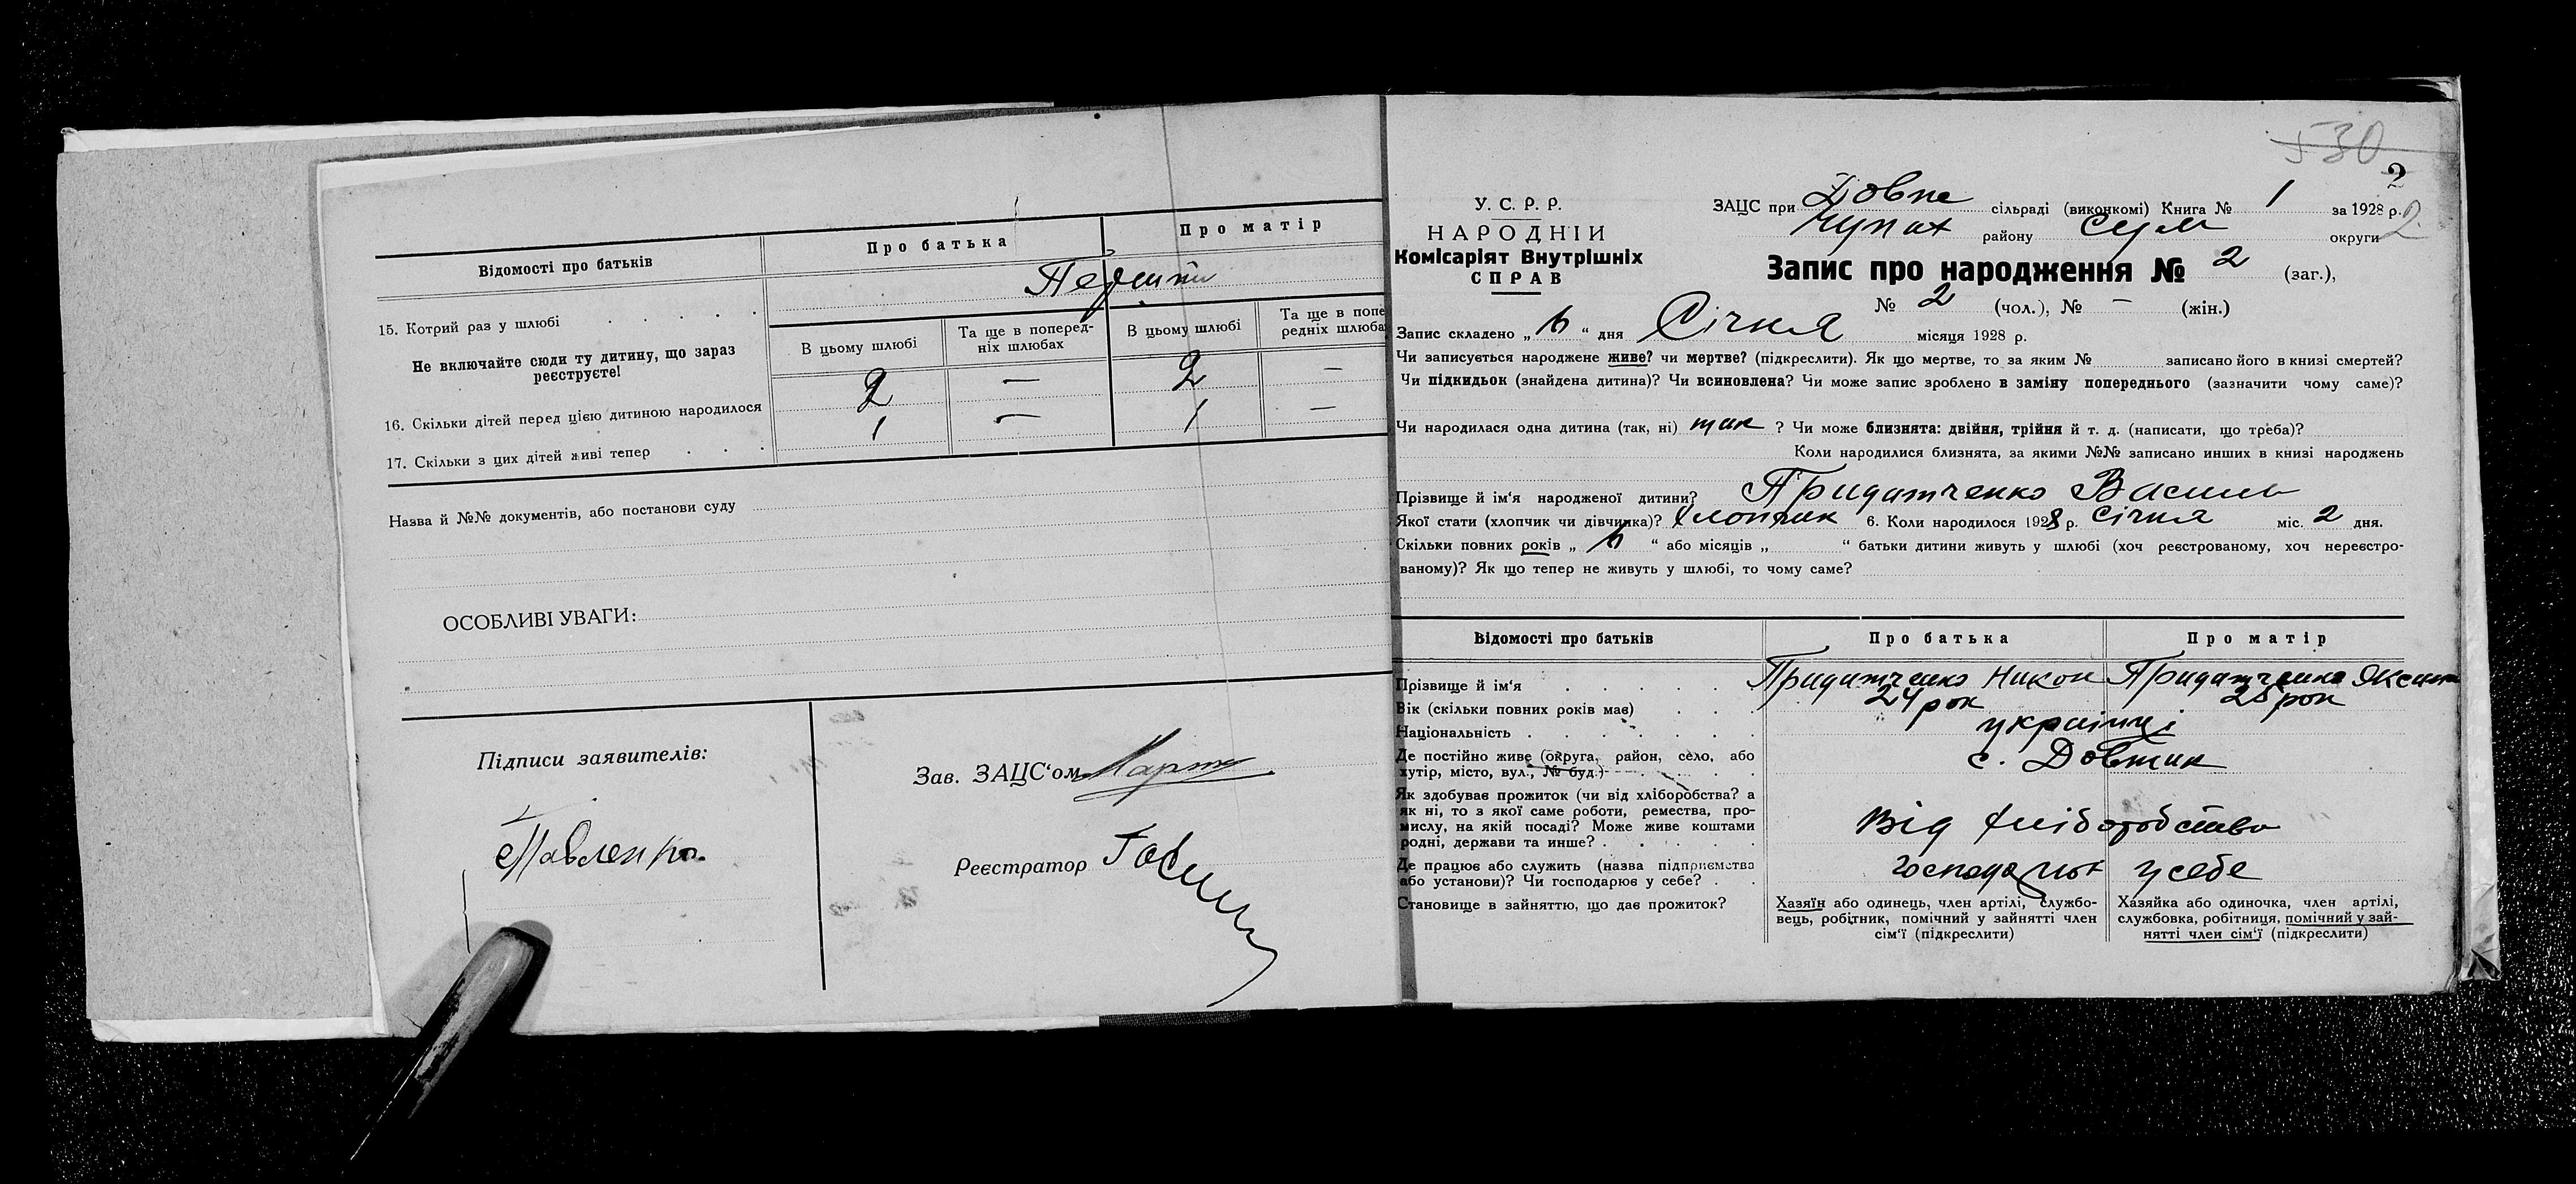 Відомості про батьків
Про батька
Про матір
15. Котрий раз у шлюбі
Перший
Не включайте сюди ту дитину, що зараз
реєструєте!
В цьому шлюбі
Та ще в поперед-
ніх шлюбах
В цьому шлюбі
Та ще в попе
редніх шлюба
16. Скільки дітей перед цією дитиною народилося
2 — 2 —
17. Скільки з цих дітей живі тепер
1 — 1 —
Назва й №№ документів, або постанови суду
ОСОБЛИВІ УВАГИ:
Підписи заявителів:
Павленко
Зав. ЗАЦС‘ом
Реєстратор
530
2
2
У. С. Р. Р.
НАРОДНІЙ
Комісаріят Внутрішніх
СПРАВ
ЗАЦС при Довпе сільраді (виконкомі) Книга № 1 за 1928 р.
Чупах району Сум округи
Запис про народження № 2 (заг.),
№ 2 (чол.), № — (жін.)
Запис складено „ 6 “ дня Січня місяця 1928 р.
Чи записується народжене живе? чи мертве? (підкреслити). Як що мертве, то за яким № записано його в книзі смертей?
Чи підкидьок (знайдена дитина)? Чи всиновлена? Чи може запис зроблено в заміну попереднього (зазначити чому саме)?
Чи народилася одна дитина (так, ні) так ? Чи може близнята: двійня, трійня й т. д. (написати, що треба)?
Коли народилися близнята, за якими №№ записано инших в книзі народжень
Прізвище й ім‘я народженої дитини? Придатченко Василь
Якої стати (хлопчик чи дівчинка)? Хлопчик 6. Коли народилося 1928 р. Січня міс. 2 дня.
Скільки повних років „ 6 “ або місяців „ “ батьки дитини живуть у шлюбі (хоч реєстрованому, хоч нереєстро-
ваному)? Як що тепер не живуть у шлюбі, то чому саме?
Відомості про батьків
Про батька
Про матір
Прізвище й ім‘я
Придатченко Никон
Придатченко
Вік (скільки повних років має)
24 рок
25 рок
Національність
українці
Де постійно живе (округа, район, село, або
хутір, місто, вул., № буд.)
с. Довжик
Як здобуває прожиток (чи від хліборобства? а
як ні, то з якої саме роботи, ремества, про-
мислу, на якій посаді? Може живе коштами
родні, держави та инше?
Від хліборобства
Де працює або служить (назва підприємства
або установи)? Чи господарює у себе?
господарют у себе
Становище в зайняттю, що дає прожиток?
Хазяїн або одинець, член артілі, службо-
вець, робітник, помічний у зайнятті член
сім‘ї (підкреслити)
Хазяйка або одиночка, член артілі,
службовка, робітниця, помічний у зай-
нятті член сім‘ї (підкреслити)